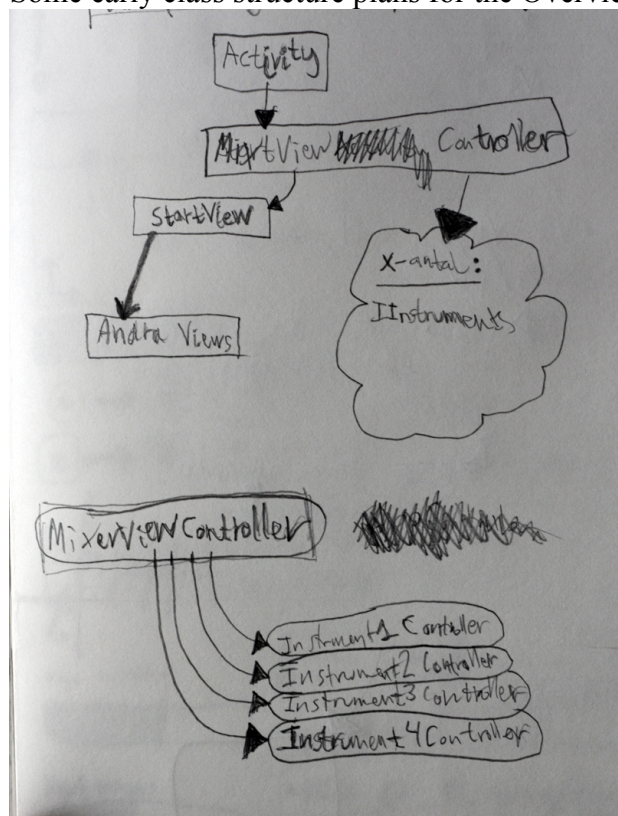 Some early class structure plans for the Overvie
Activity
View Controller
StartView
X-antal:
IInstruments
Andra Views
MixerViewController
Instrument1 Controller
Instrument2 Controller
Instrument3 Controller
Instrument4 Controller